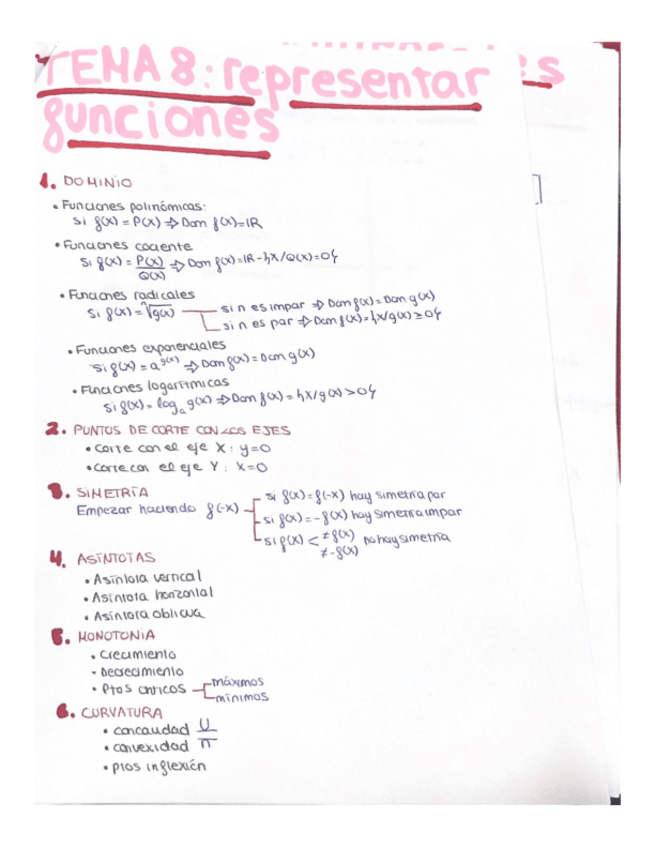 TEMA 8: representar
funciones
1. DOMINIO
• Funciones polinómicas:
Si f(x) = P(x) ⇒ Dom f(x)=IR
• Funciones cociente
Si f(x) = P(x)/Q(x) ⇒ Dom f(x)=IR-{x/Q(x)=0}
• Funciones radicales
Si f(x) = ⁿ√g(x)
si n es impar ⇒ Dom f(x) = Dom g(x)
si n es par ⇒ Dom f(x) = {x/g(x) ≥ 0}
• Funciones exponenciales
Si f(x) = a^g(x) ⇒ Dom f(x) = Dom g(x)
• Funciones logarítmicas
Si f(x) = logₐ g(x) ⇒ Dom f(x) = {x/g(x) > 0}
2. PUNTOS DE CORTE CON LOS EJES
• Corte con el eje X: y=0
• Corte con el eje Y: x=0
3. SIMETRÍA
si f(x) = f(-x) hay simetría par
Empezar haciendo f(-x)
si f(x) = -f(x) hay simetría impar
si f(x) < ≠ f(x) no hay simetría
≠ -f(x)
4. ASÍNTOTAS
• Asíntota vertical
• Asíntota horizontal
• Asíntota oblicua
5. MONOTONÍA
• Crecimiento
• Decrecimiento
• Ptos críticos
máximos
mínimos
6. CURVATURA
• concavidad U
• convexidad ∩
• ptos inflexión